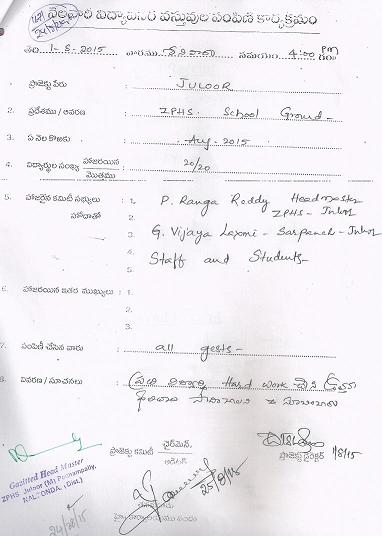 నెలవారి విద్యా వస్తువుల పంపిణి కార్యక్రమం
తేది 1-8-2015 వారము శనివారం సమయం 4:00 PM గం
ప్రాజెక్టు పేరు JULOOR
2. ప్రదేశము / ఆవరణ ZPHS. School Ground-
3. ఏ నెల కొఱకు Aug-2015
4. విద్యార్థుల సంఖ్య హాజరయిన 20/20
మొత్తము
5. హాజరైన కమిటీ సభ్యులు 1. P. Ranga Reddy Headmaster
హోదాతో 2. ZPHS-Juloor
3. G. Vijaya Laxmi - Sarpanch-Juloor
4.
5. Staff and Students-
6. హాజరయిన ఇతర ముఖ్యులు : 1.
2.
3.
7. పంపిణీ చేసిన వారు all gests-
8. వివరణ / సూచనలు ప్రతి విద్యార్థి Hard work చేసి
ప్రాజెక్టు కమిటీ చైర్మెన్.
ఆడిటర్
ప్రాజెక్టు డైరెక్టర్ 1/8/15
Gazitted Head Master
ZPHS Juloor (M) Pochampally,
NALGONDA. (Dist.)
25/8/15
24/8/15